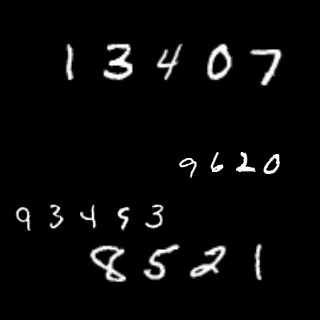 13407
9620
93453
8521